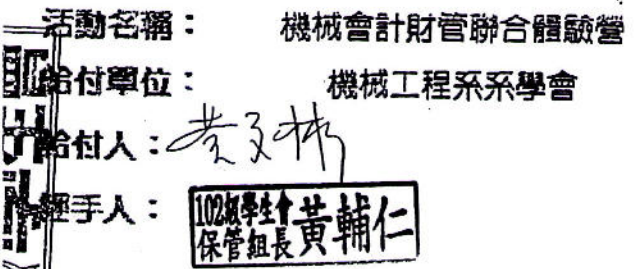 活動名稱： 機械會計財管聯合體驗營
給付單位： 機械工程系系學會
給付人：
經手人： 102級學生會 保管組長 黃輔仁